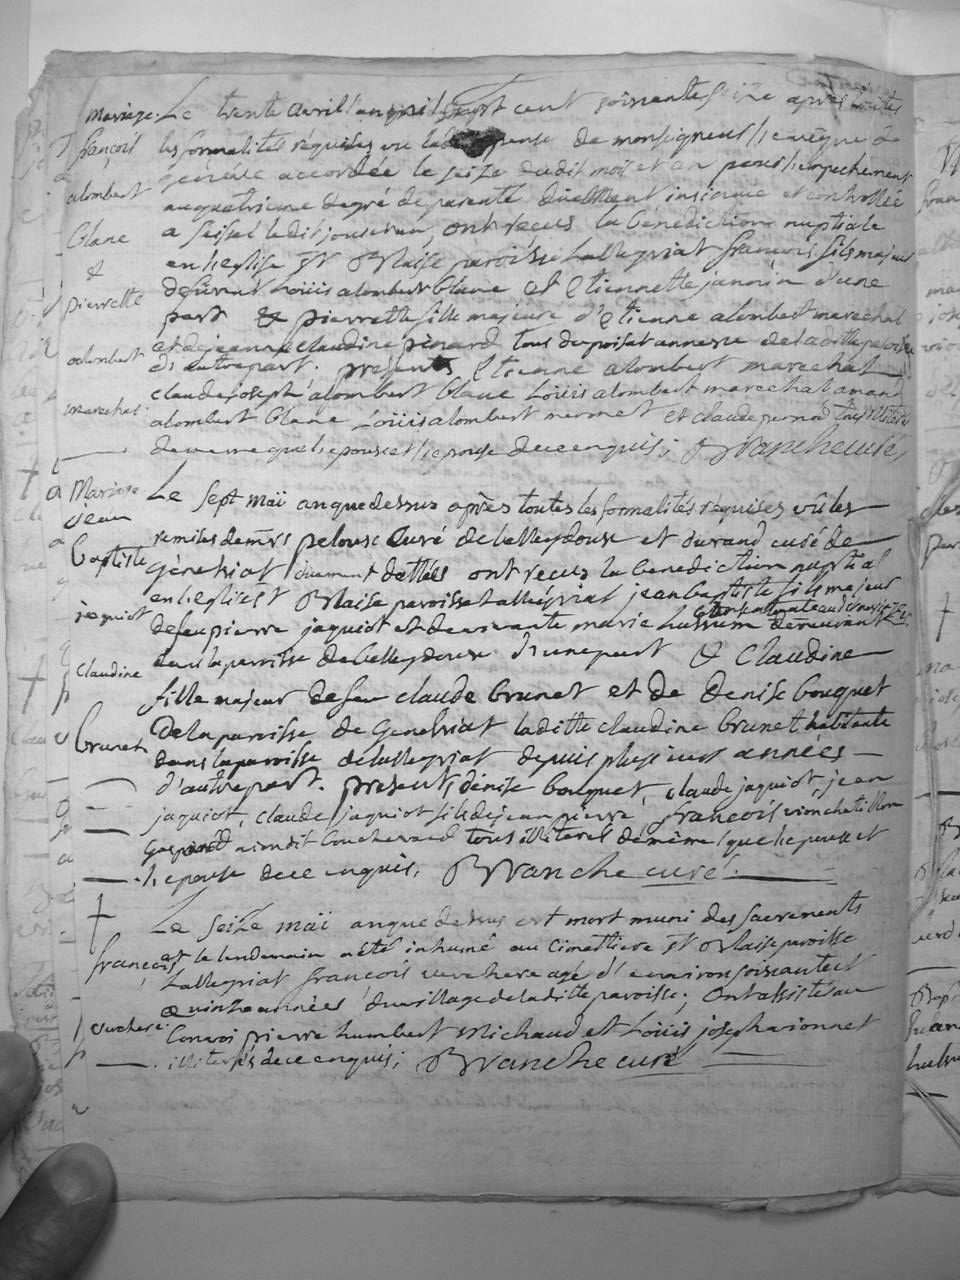 mariage. Le trente avril an mil sept cent soissante seize après toutes
françois les formalités réquises vu la dispense de monseigneur l'evêque de
genève accordée le seize dudit moi et an pour l'empechement
alombert au quatrieme degré de parenté duëment insinuée et controllée
a seissel ledit jour et an, ont recus la bénédiction nuptiale
blanc en l'eglise St Blaise paroisse Lalleyriat françois fils majeur
& defunt Loüis alombert blanc et Etiennette jannin d'une
pierrette part & pierrette fille majeure d'Etienne alombert marechal
et de jeanne claudine pénard tous du poisat annexe de laditte paroisse
alombert d'autre part. présents Etienne alombert marechal
claude joseph alombert blanc Loüis alombert marechal amant
marechal alombert blanc Loüis alombert mermet et claude tous illiteres
de meme que l'epoux et l'epouse de ce enquis; Blanche curé
Mariage Le sept maï an que dessus après toutes les formalités réquises vû les
jean remises de mrs pelouse Curé de belleydoux et durand curé de
Baptiste génésiat duement dattées ont recus la bénédiction nuptial
en l'eglise St Blaise paroisse Lalleyriat jean baptiste fils majeur
jaquiot de feu pierre jaquiot et de vivante marie husson demeurant
dans la paroisse de belleydoux d'une part & Claudine
Claudine fille majeur de feu claude brunet et de denise bouquet
De la paroisse de Genésiat laditte claudine brunet habitante
brunet dans la paroisse de lalleyriat depuis plusieurs années
d'autre part. présents, dénise bouquet, claude jaquiot, jean
jaquiot, claude jaquiot fils de jean pierre françois vion chatillon
tous illiteres de même que l'epoux et
l'epouse de ce enquis; Blanche curé.
Le seize maï an que dessus est mort muni des sacrements
françois et le lendemain a été inhumé au Cimettiere St Blaise paroisse
Lalleyriat françois agé d'environ soissante et
quinze années du village de laditte paroisse; ont assisté au
Convoi pierre humbert Michaud et Loüis joseph
illiterés de ce enquis; Blanche curé